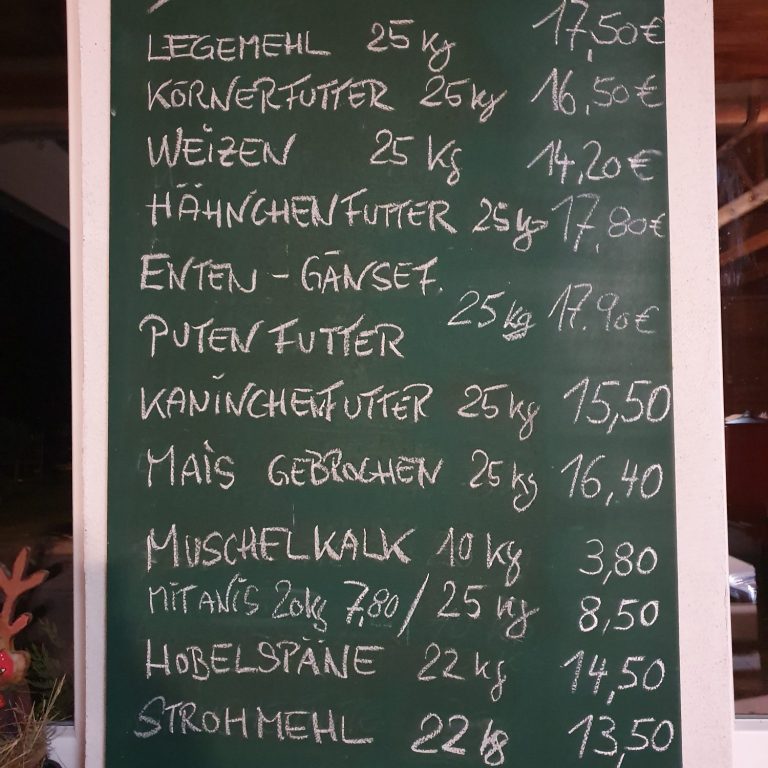 LEGEMEHL 25 kg 17,50€
KÖRNERFUTTER 25 kg 16,50€
WEiZEN 25 kg 14,20€
HÄHNCHENFUTTER 25kg 17,80€
ENTEN - GÄNSEF.
25 kg 17.90€
PUTENFUTTER
KANiNCHENFUTTER 25 kg 15,50
MAiS GEBROCHEN 25 kg 16,40
MUSCHELKALK 10 kg 3,80
MIT ANIS 20kg 7,80 / 25 kg 8,50
HOBELSPÄNE 22 kg 14,50
STROHMEHL 22 kg 13,50